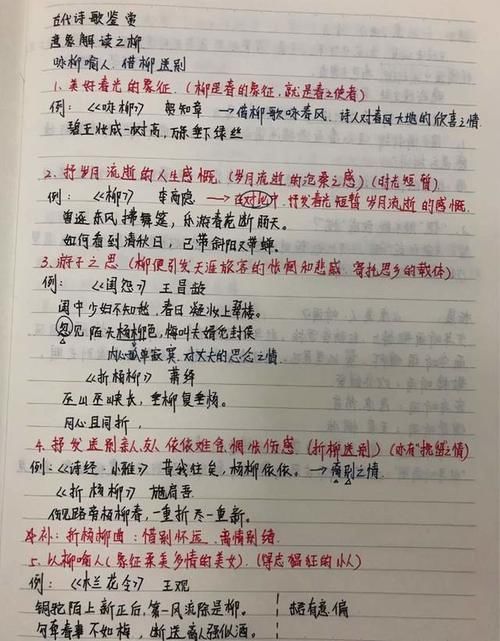 古代诗歌鉴赏
意象解读之柳
咏柳喻人 借柳送别
1. 美好春光的象征.（柳是春的象征,就是春之使者）
例: 《咏柳》 贺知章 →借柳歌咏春风 诗人对春回大地的欣喜之情
碧玉妆成一树高,万条垂下绿丝
2. 抒岁月流逝的人生感慨（岁月流逝的沧桑之感）(时光短暂)
例: 《柳》 李商隐 → 在对比中,抒发春光短暂 岁月流逝的感慨
曾逐东风拂舞筵,乐游春苑断肠天。
如何肯到清秋日,已带斜阳又带蝉。
3. 游子之思(柳便引发天涯旅客的怅惘和悲感 寄托思乡的载体)
例: 《闺怨》 王昌龄
闺中少妇不知愁,春日凝妆上翠楼。
忽见陌头杨柳色,悔叫夫婿觅封侯
内心孤单寂寞,对丈夫的思念之情
《折杨柳》 萧绎
巫山巫峡长,垂柳复垂杨。
同心且同折,
4. 抒发送别亲人友人依依难舍惆怅伤感(折柳送别)(亦有"挽留"之情)
例:《诗经·小雅》昔我往矣,杨柳依依。→ 惜别之情
《折杨柳》 施肩吾
伤见路旁杨柳春,一重折尽一重新。
补: 折杨柳曲:惜别怀远 离情别绪
5. 以柳喻人(象征柔美多情的美女).(得志猖狂的小人)
例: 《木兰花令》 王观
铜驼陌上新正后,第一风流除是柳。
勾牵春事不如梅,断送离人强似酒。